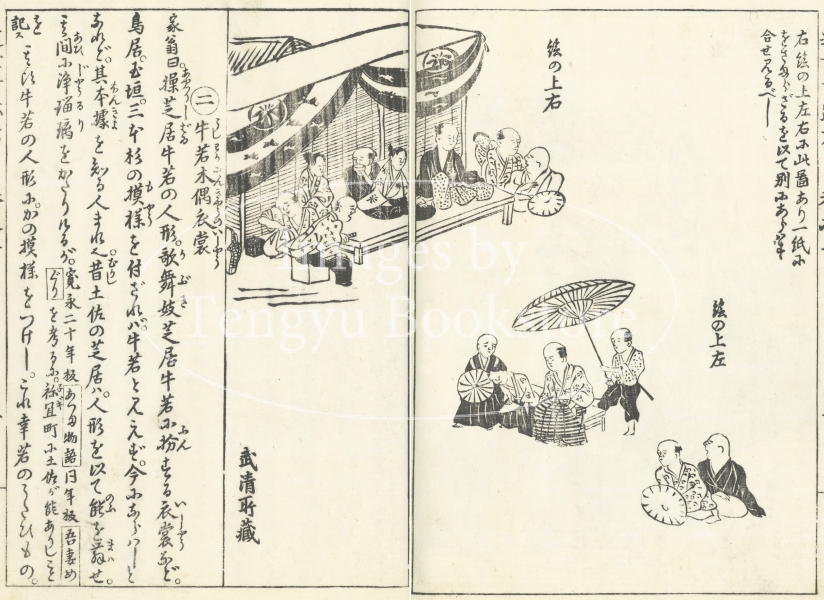 右絵の上左右に此図あり一紙に
かきたらざるを以て別にあらはす
合せみるべし
絵の上右
絵の上左
武清所蔵
㊁牛若木偶衣裳
家翁曰。操芝居牛若の人形。歌舞妓芝居牛若に扮する衣裳など。
鳥居。玉垣。三本杉の摸様を付ざれバ牛若と見えず。今にこらハしと
なれど。其本據を知る人まれ也。昔土佐の芝居ハ。人形を以て能を舞せ。
其間に浄瑠璃をかたりけるが。寛永二十年板あづま物語同年板吾妻め
ぐりを考るに。祢宜町に土佐が能ありしことを
記ス
其比牛若の人形に。かの摸様をつけし。これ幸若のうたひもの。
Images by
Tengyu Bookstore